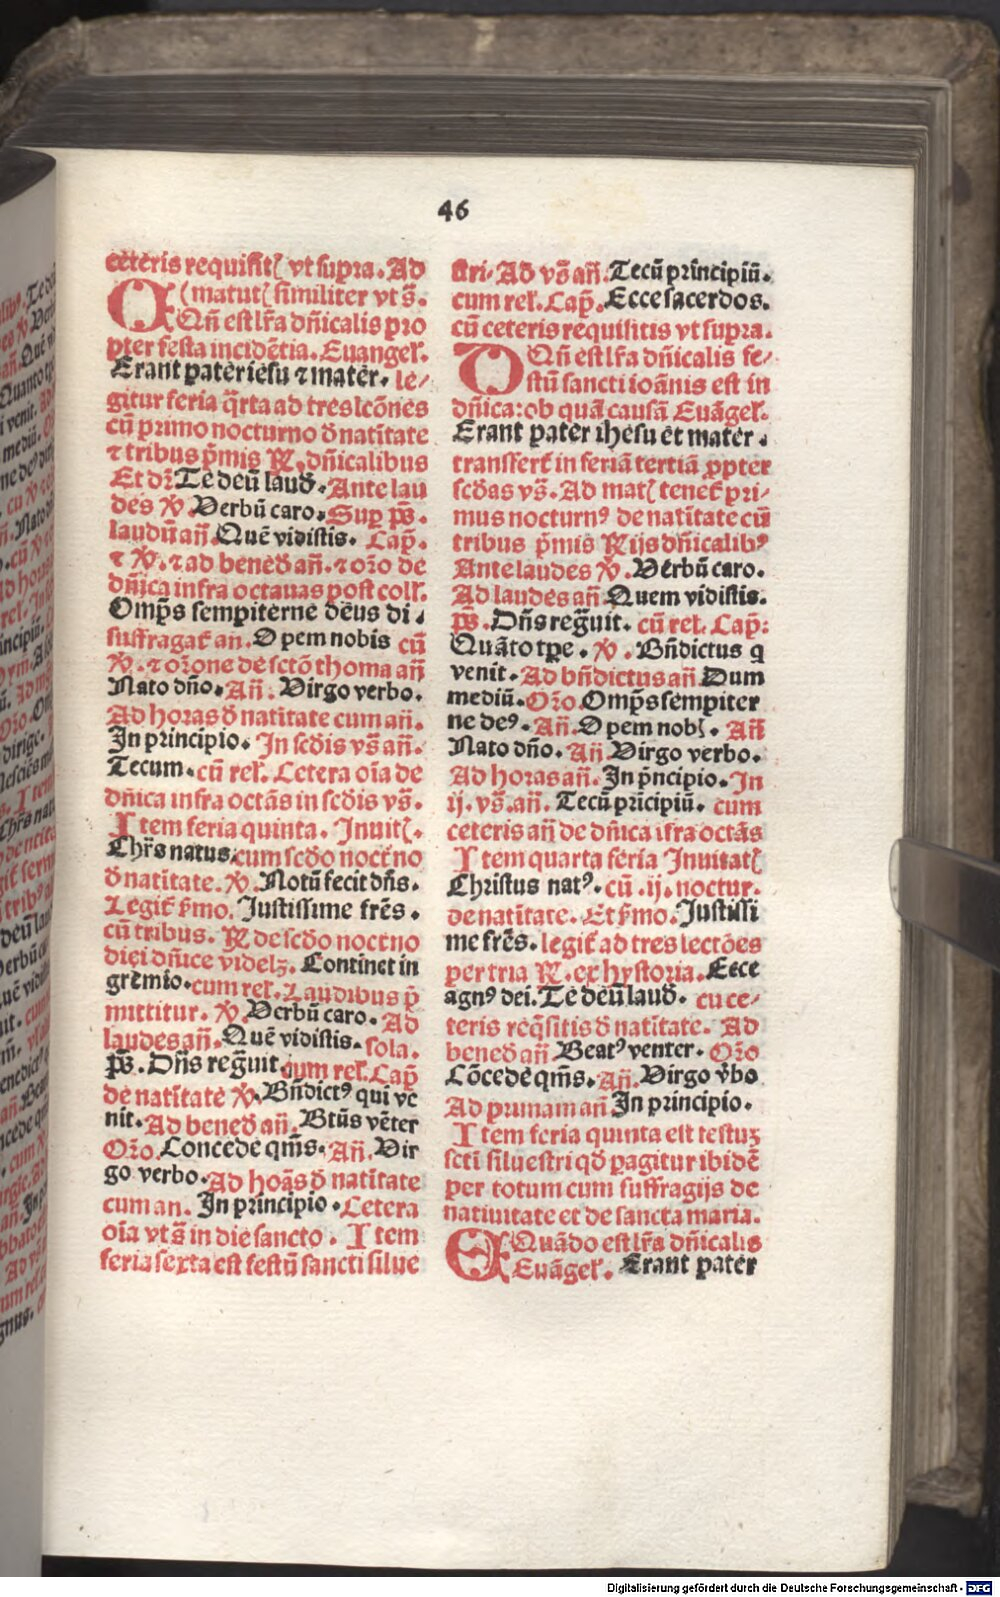 46
ceteris requisitꝭ vt supra. Ad
(matutꝭ similiter vt s̄.
Qn̄ est lr̄a dn̄icalis pro
pter festa incidētia. Euangel̕.
Erant pater iesu ⁊ mater. le⸗
gitur feria q̄rta ad tres lcōnes
cū primo nocturno ꝺ natītate
⁊ tribus p̄mis ℟. dn̄icalibus
Et dr̄ Te deū lauꝺ. Ante lau
des ℣. Verbū caro. Suꝑ ps̄.
laudū an̄. Quē vidistis. Cap̄.
⁊ ℣. ⁊ ad beneꝺ an̄. ⁊ or̄o de
dn̄ica infra octauas post coll̕.
Omp̄s sempiterne deus di⸗
suffragaƭ an̄. O pem nobis cū
℣. ⁊ or̄one de sctō thoma an̄
Nato dn̄o. An̄. Virgo verbo.
Ad horas ꝺ natītate cum an̄.
In principio. In scd̄is vs̄ an̄.
Tecum. cū rel̕. Cetera oīa de
dn̄ica infra octās in scd̄is vs̄.
Item feria quinta. Inuitꝭ.
Chr̄s natus. cum scd̄o noct̄no
ꝺ natitate. ℣. Notū fecit dn̄s.
Legiƭ s̄mo. Justissime fr̄es.
cū tribus. ℟ de scd̄o noct̄no
diei dn̄ice videlꝫ. Continet in
gremio. cum rel̕. Laudibus p̄
mittitur. ℣. Verbū caro. Ad
laudes an̄. Quē vidistis. sola.
ps̄. Dn̄s regn̄uit. cum rel̕. Cap̄
de natītate ℣. Bn̄dictꝰ qui ve
nit. Ad beneꝺ an̄. Btūs vēter
Or̄o. Concede qm̄s. An̄. Vir
go verbo. Ad hoās ꝺ natītate
cum an. In principio. Cetera
oīa vt s̄ in die sancto. Item
feria sexta est festū sancti silue
stri. Ad vs̄ an̄. Tecū principiū.
cum rel̕. Cap̄. Ecce sacerdos.
cū ceteris requisitis vt supra.
Qn̄ est lr̄a dn̄icalis fe⸗
stū sancti ioānis est in
dn̄ica: ob quā causā Euāgel̕.
Erant pater ihesu et mater.
transferƭ in feriā tertiā ꝓpter
scd̄as vs̄. Ad matꝭ teneƭ pri⸗
mus nocturnꝰ de natītate cū
tribus p̄mis ℟ijs dn̄icalibꝰ
Ante laudes ℣. Verbū caro.
Ad laudes an̄ Quem vidistis.
ps̄. Dn̄s regn̄uit. cū rel̕. Cap̄:
Quāto tp̄e. ℣. Bn̄dictus q
venit. Ad bn̄dictus an̄ Dum
mediū. Or̄o Omp̄s sempiter
ne deꝰ. An̄. O pem nobꝭ. An̄
Nato dn̄o. An̄ Virgo verbo.
Ad horas an̄. In p̄ncipio. In
ij. vs̄. an̄. Tecū pricipiū. cum
ceteris an̄ de dn̄ica ifra octās
Item quarta feria Inuitatꝭ
Christus natꝰ. cū .ij. noctur.
de natītate. Et s̄mo. Justissi
me fr̄es. legiƭ ad tres lectōes
per tria ℟. ex hystoria. Ecce
agnꝰ dei. Te deū lauꝺ. cu ce⸗
teris req̄sitis ꝺ natītate. Ad
beneꝺ an̄ Beatꝰ venter. Or̄o
Cōcede qm̄s. An̄. Virgo v̄bo
Ad primam an̄ In principio.
Item feria quinta est festuꝫ
scti siluestri qd̄ ꝑagitur ibidē
per totum cum suffragijs de
natiuitate et de sancta maria.
Quādo est lr̄a dn̄icalis
Euāgel̕. Erant pater
Digitalisierung gefördert durch die Deutsche Forschungsgemeinschaft - DFG